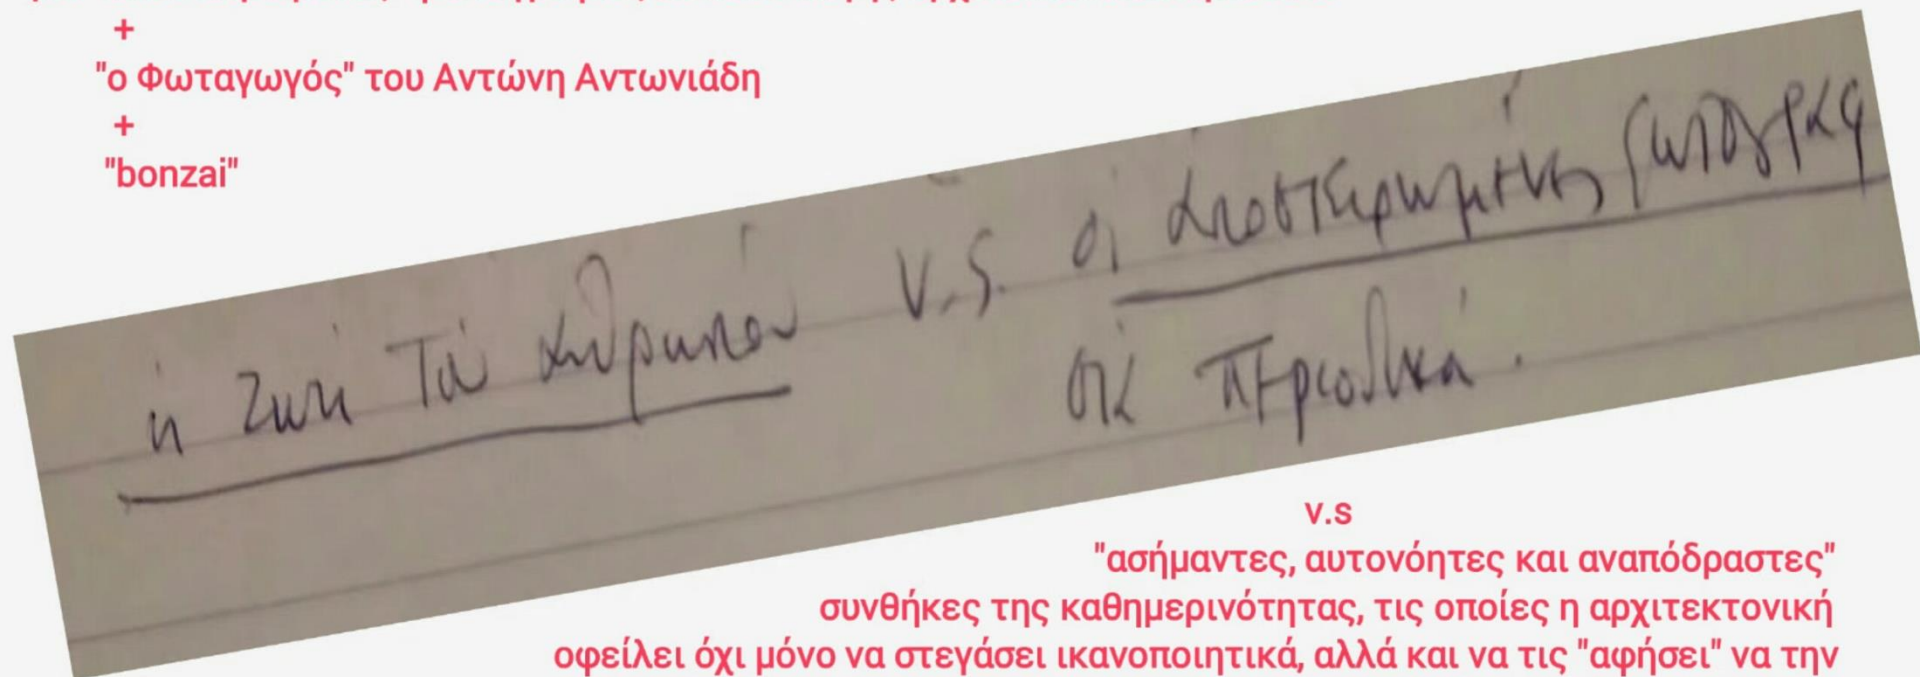 +
"ο Φωταγωγός" του Αντώνη Αντωνιάδη
+
"bonzai"
η ζωή του ανθρώπου v.s. οι αποστειρωμένες
στα περιοδικά.
v.s
"ασήμαντες, αυτονόητες και αναπόδραστες"
συνθήκες της καθημερινότητας, τις οποίες η αρχιτεκτονική
οφείλει όχι μόνο να στεγάσει ικανοποιητικά, αλλά και να τις "αφήσει" να την